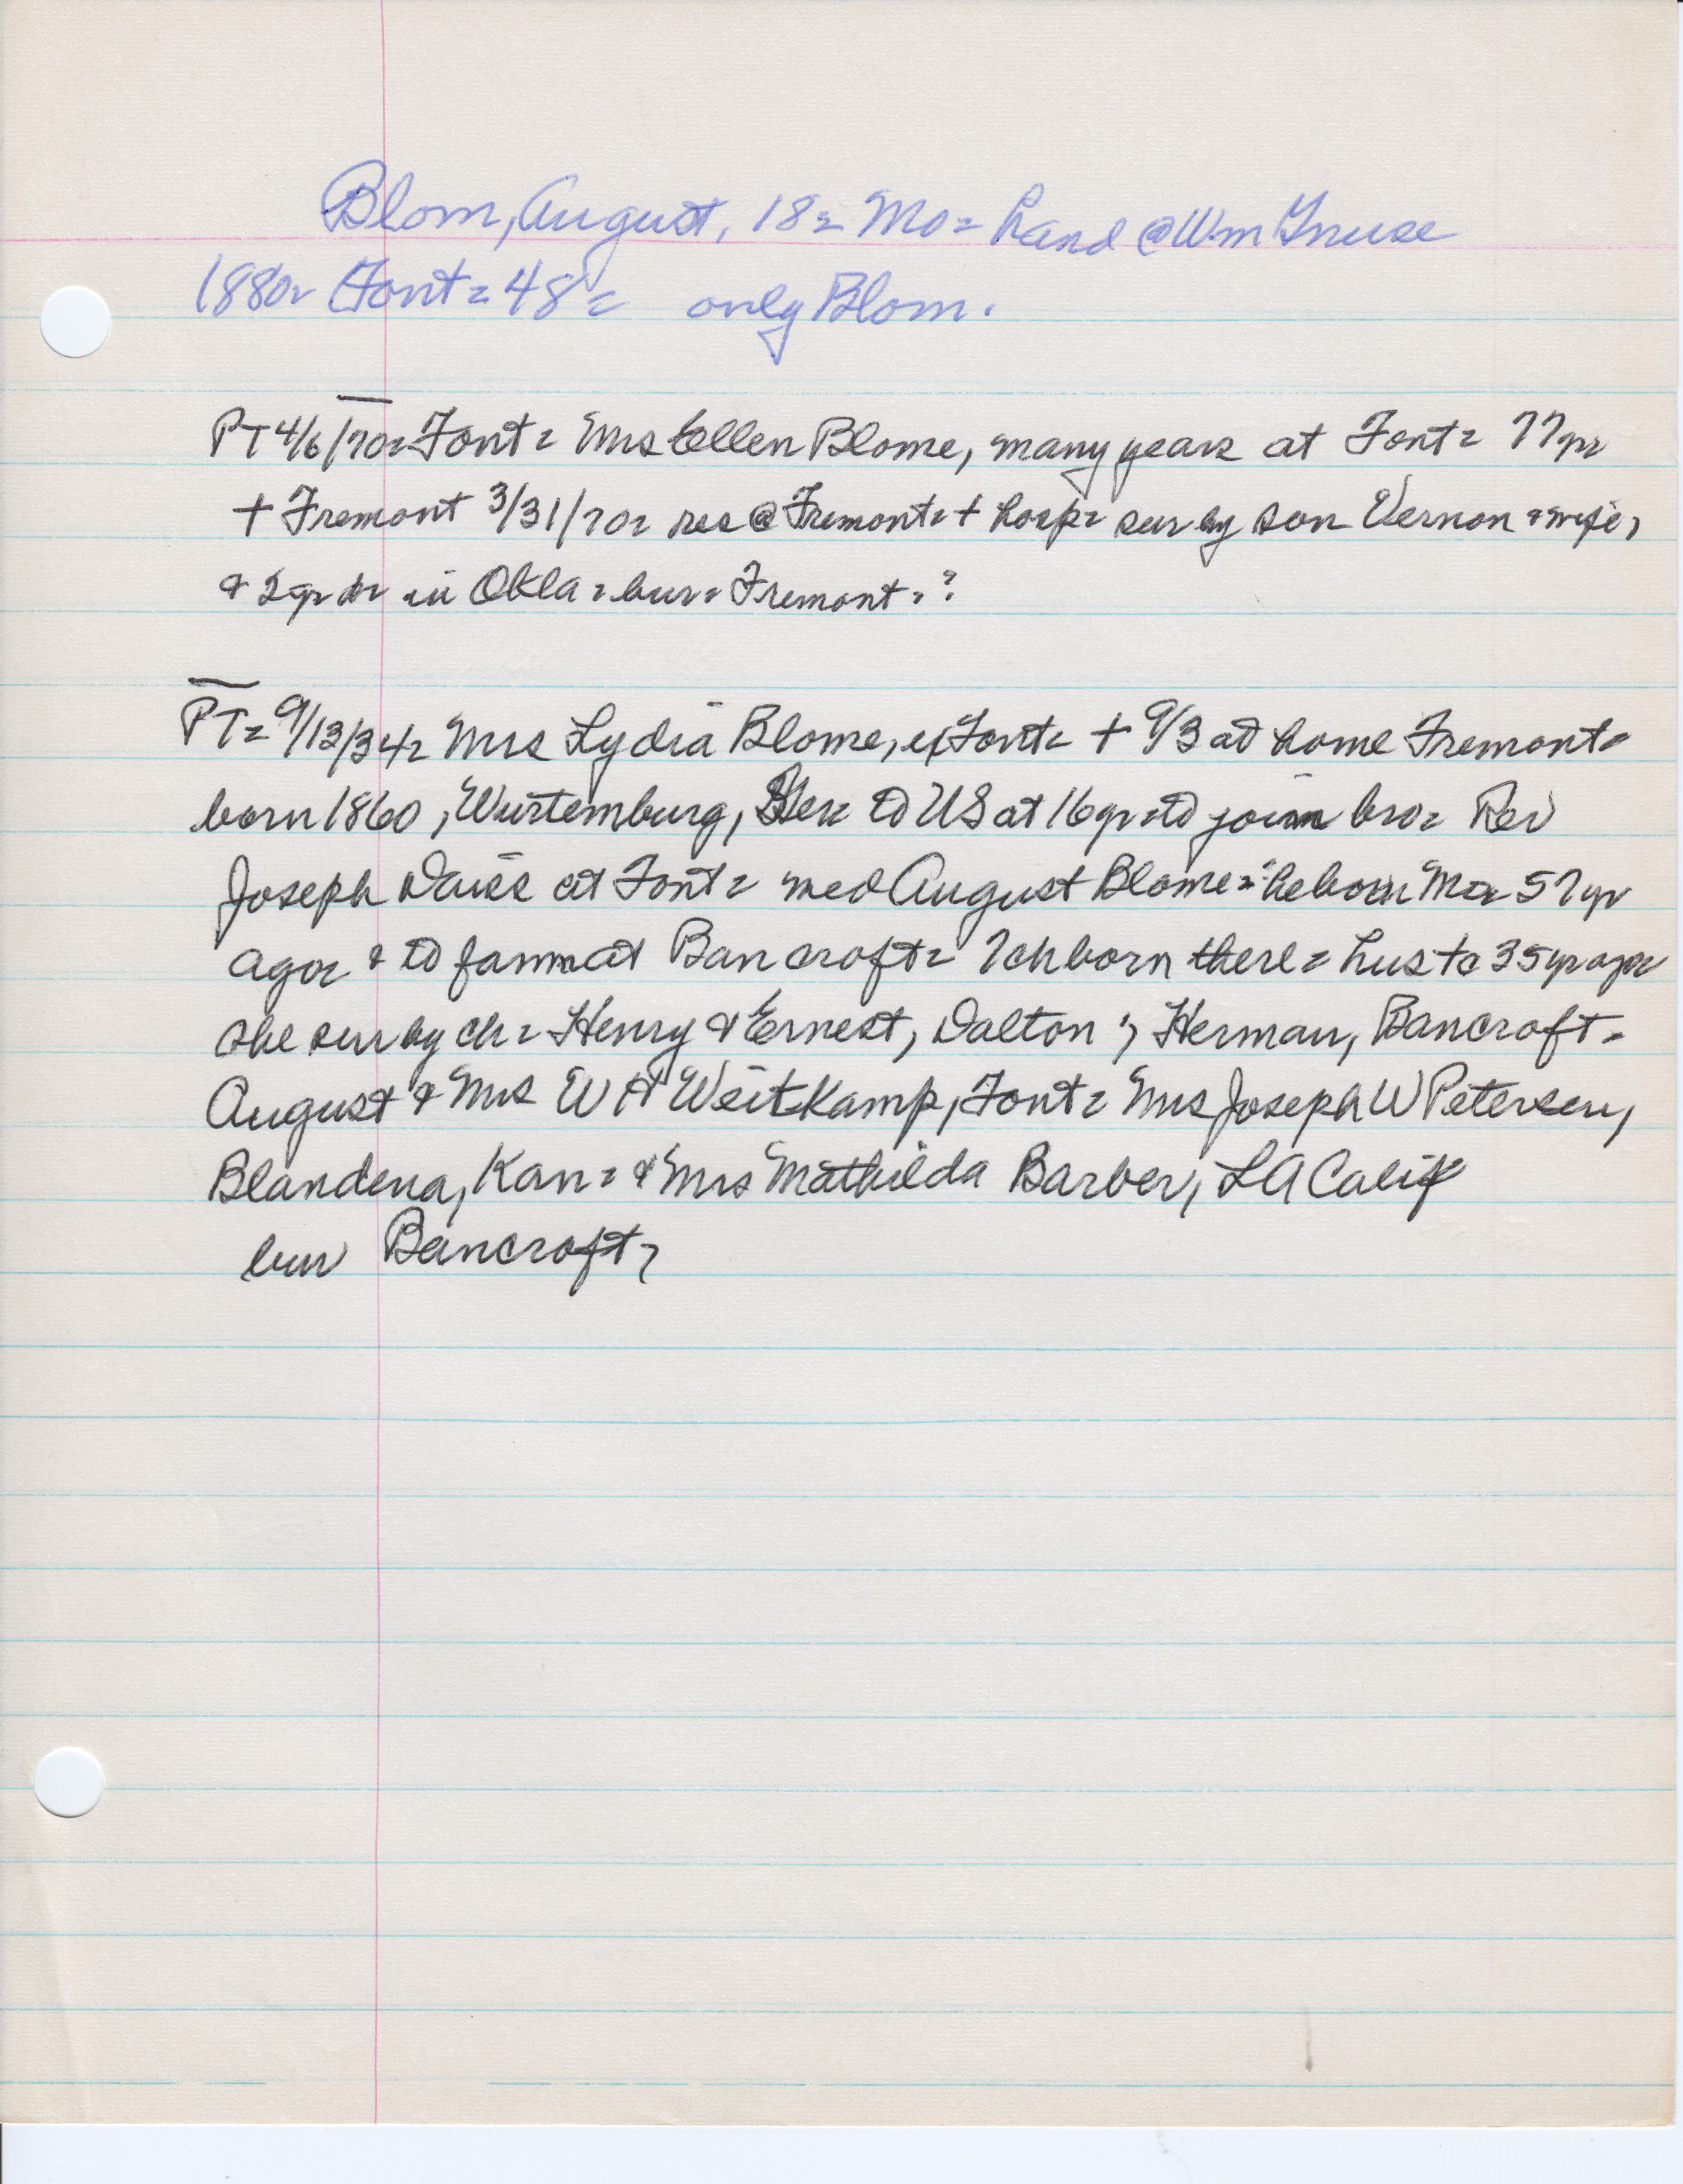 Blom, August, 18= Mo= hand @ Wm Gnuse
1880= Font= 48= only Blom.
PT 4/6/70= Font= Mrs Ellen Blome, many years at Font= 77yr
+ Fremont 3/31/70= res @ Fremont= + hosp= sur by son Vernon & wife,
& 2 gr ch= in Okla= bur= Fremont=?
PT= 9/13/34= Mrs Lydia Blome, ex Font= + 9/3 at home Fremont=
born 1860, Wurtemburg, Ger= to US at 16yr= to join bro= Rev
Joseph at Font= med August Blome= he born Mo= 57yr
ago= & to farm at Bancroft= 7ch born there= hus + 35yr ago=
she sur by ch= Henry & Ernest, Dalton; Herman, Bancroft=
August & Mrs W H Weitkamp, Font= Mrs Joseph W Petersen,
Blandena, Kan= & Mrs Mathilda Barber, LA Calif
bur Bancroft=